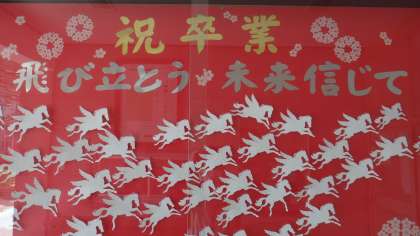 祝卒業
飛び立とう 未来信じて